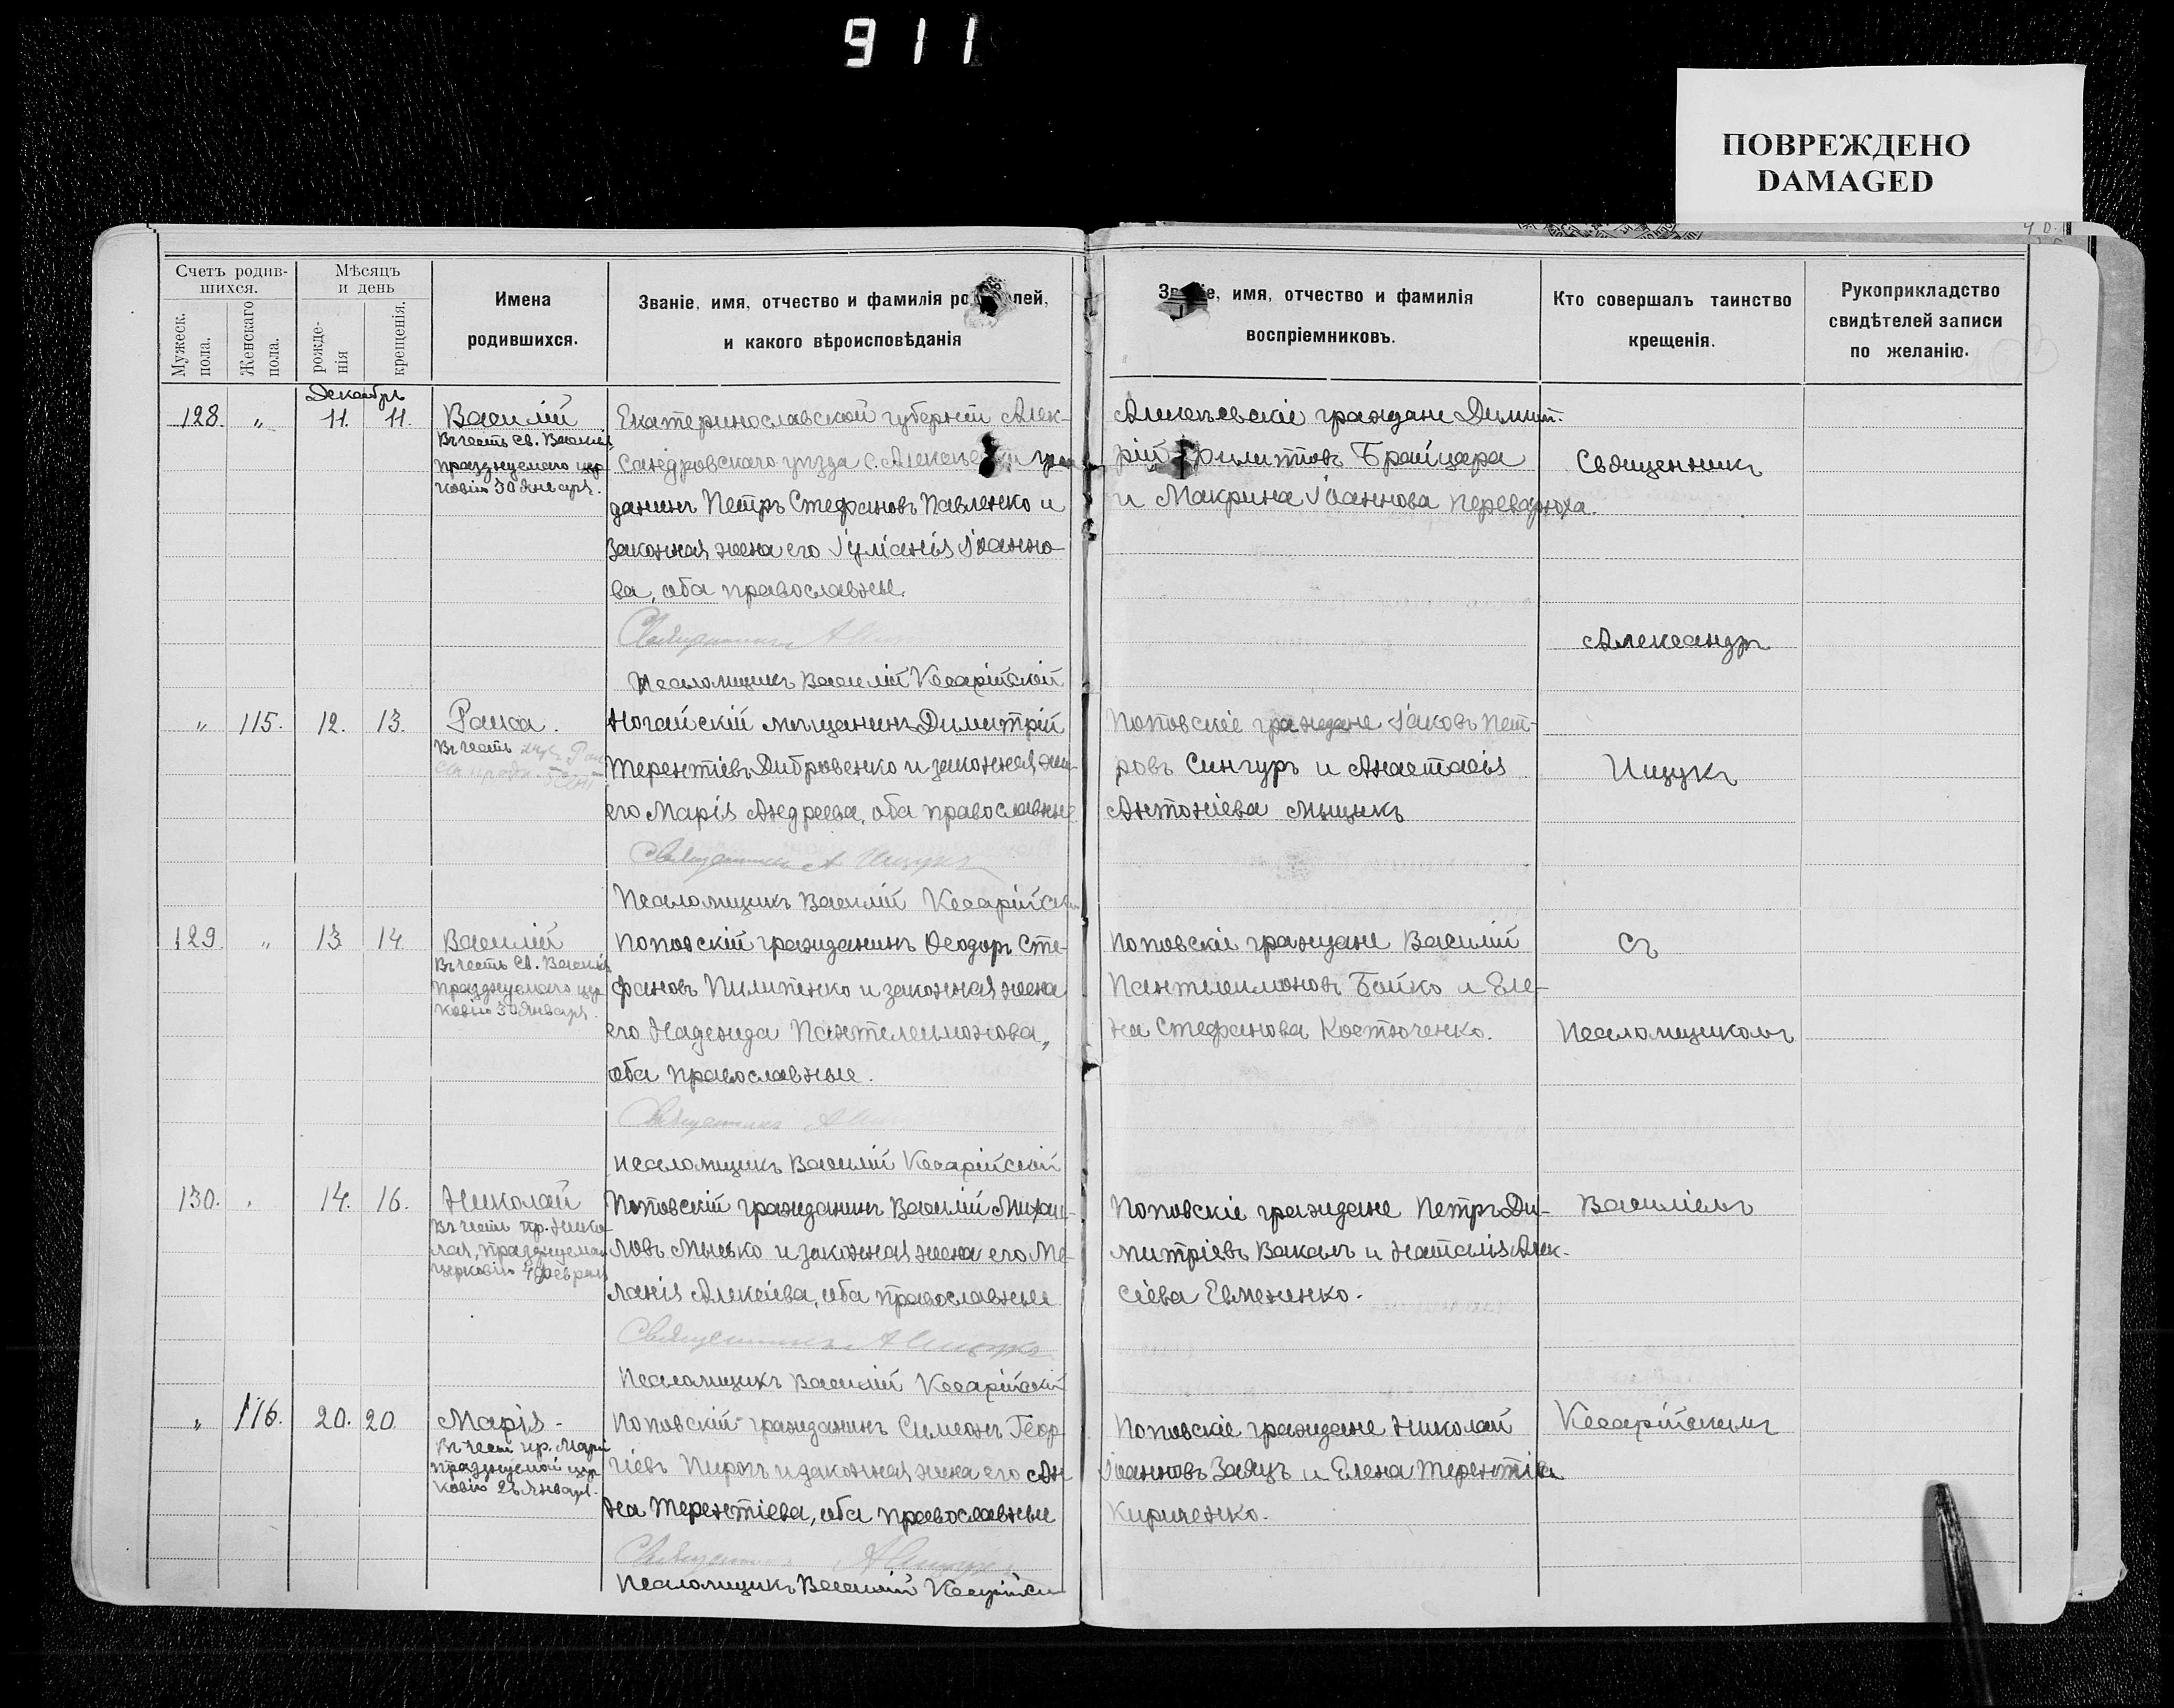 911
ПОВРЕЖДЕНО
DAMAGED
Счетъ родив-
шихся.
Мужеск.
пола.
Женскаго
пола.
Мѣсяцъ
и день
рожде-
нія
крещенія.
Имена
родившихся.
Званіе, имя, отчество и фамилія
и какого вѣроисповѣданія
имя, отчество и фамилія
воспріемниковъ.
Кто совершалъ таинство
крещенія.
Рукоприкладство
свидѣтелей записи
по желанію.
Декабрь
128. " 11. 11. Василій
Въ честь св. Василія
празднуемаго цер-
ковію 30 Января.
Екатеринославской губерніи Алек-
сандровскаго уѣзда с. граж-
данинъ Петръ Стефановъ Павленко и
законная жена его Іуліанія Іоанно-
ва, оба православные.
Священникъ А
Псаломщикъ Василій Кесарійскій
граждане Димит-
рій Филиповъ Брайцара
и Макрина Іоаннова Перевдрюха.
Священникъ
Александръ
" 115. 12. 13. Раиса.
Въ честь
Ногайскій мѣщанинъ Димитрій
Терентіевъ Дибровенко и законная жен-
его Марія Андреева, оба православные
Священникъ А Ищукъ
Псаломщикъ Василій Кесарійскі
Поповскіе граждане Іаковъ Пет-
ровъ Сингуръ и Анастасія
Антоніева Мыщикъ
Ищукъ
129. " 13. 14. Василій
Въ честь св. Василія
празднуемаго цер-
ковію 30 Января.
Поповскій гражданинъ Ѳеодоръ Сте-
фановъ Пилипенко и законная жена
его Надежда Пантелеимонова,
оба православные.
Священникъ А
Псаломщикъ Василій Кесарійскій
Поповскіе граждане Василій
Пантелеимоновъ Бойко и Еле-
на Стефанова Костюченко.
Съ
Псаломщикомъ
130. " 14. 16. Николай
Въ честь пр. Нико-
лая, празднуемаго
церковію 4 Февраля
Поповскій гражданинъ Василій Михаи-
ловъ Мысько и законная жена его Ме-
ланія Алексіева, оба православные
Священникъ А Ищукъ
Псаломщикъ Василій Кесарійскій
Поповскіе граждане Петръ Ди-
митріевъ Вакалъ и Наталія Алек-
сіева Евмененко.
Василіемъ
" 116. 20. 20. Марія-
Въ честь пр. Маріи
празднуемой цер-
ковію 26 Января.
Поповскій гражданинъ Симеонъ Геор-
гіевъ Пирогъ и законная жена его Ан-
на Терентіева, оба православные
Священникъ А Ищукъ
Псаломщикъ Василій Кесарійскі
Поповскіе граждане Николай
Іоанновъ Заяцъ и Елена Терентіева
Кириченко.
Кесарійскимъ